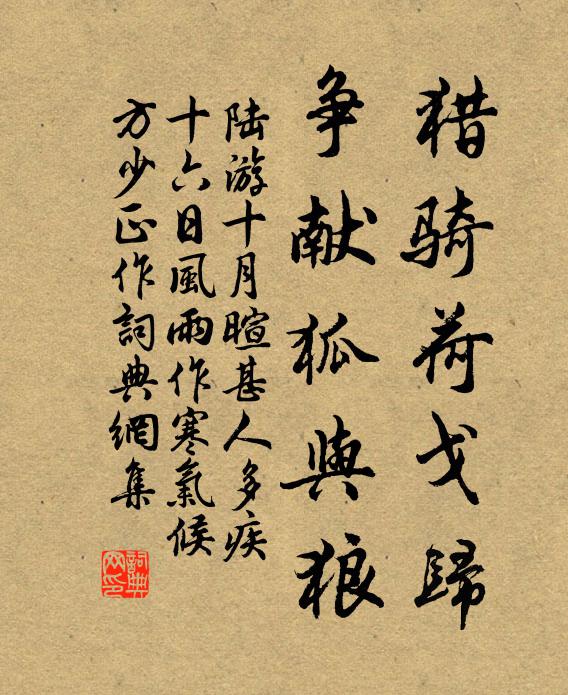 猎骑荷戈歸
争献狐與狼
陆游十月暄甚人多疾
十六日風雨作寒氣候
方少正作詞典網集
詞典网印